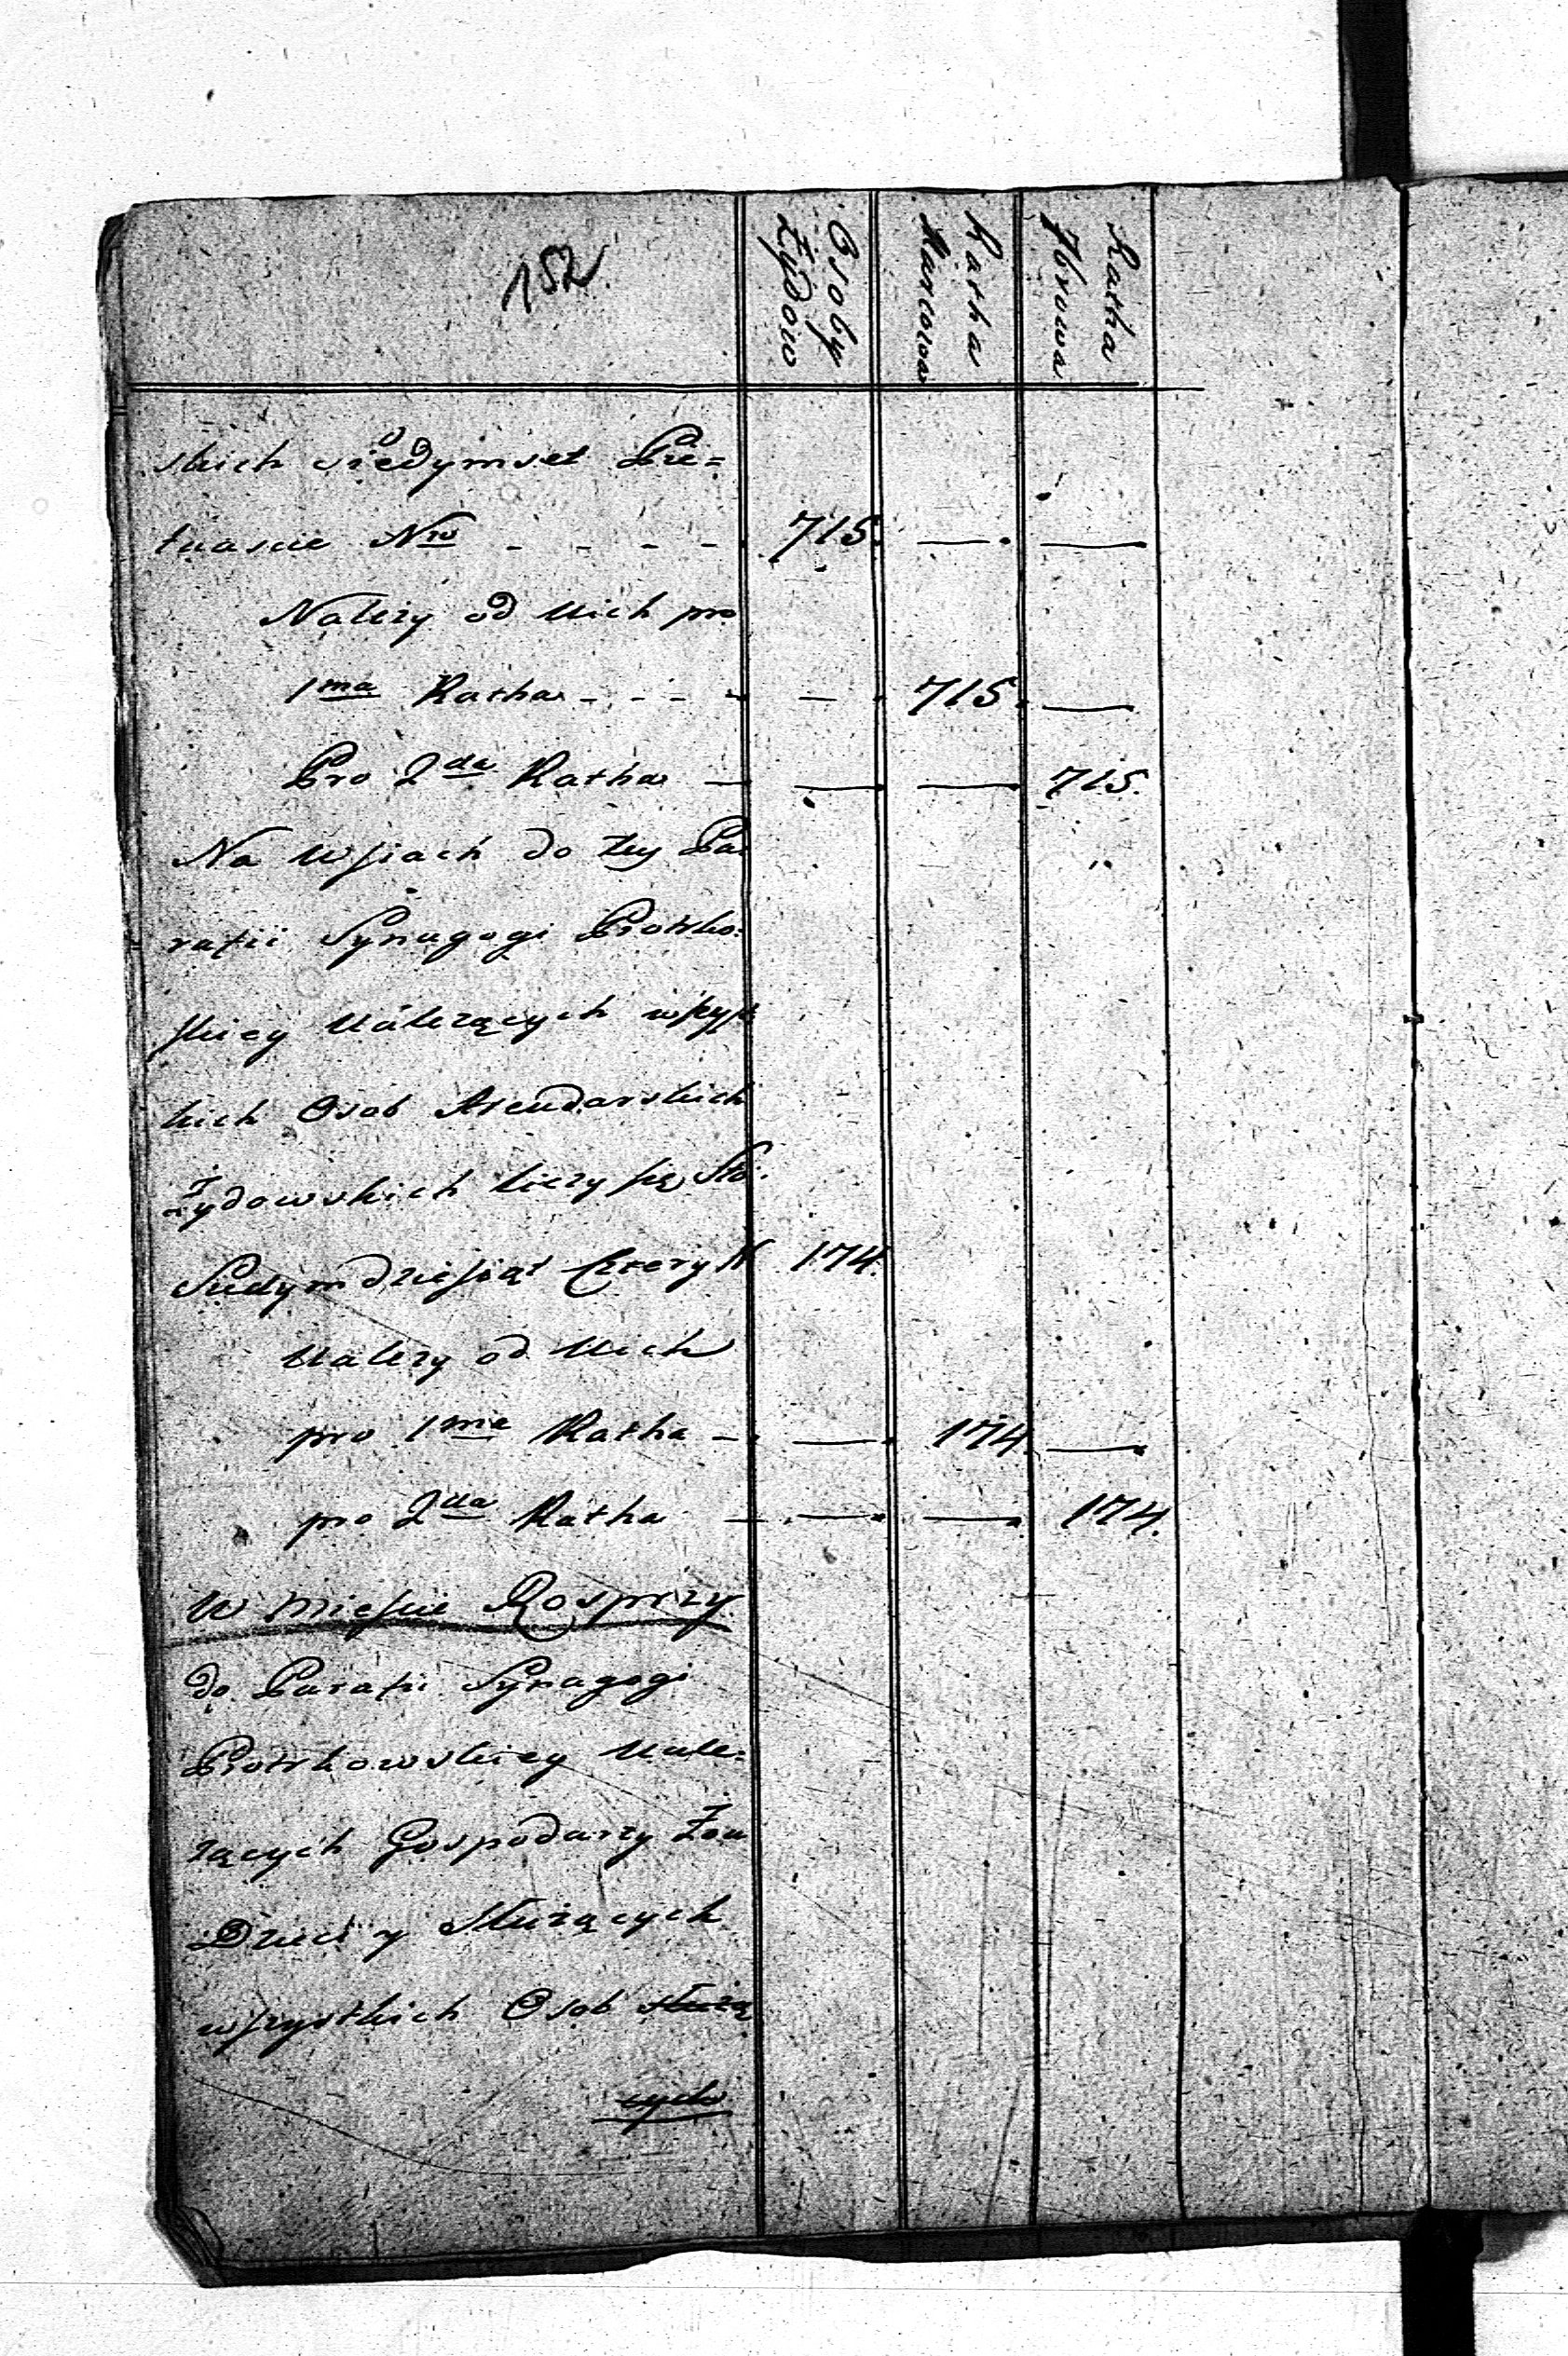 152
Osoby Żydow
Ratha Marcowa
Ratha 7browa
skich siedymset Pie=
tnascie Nro - - - - 715. — —
Nalezy od Nich pro
1ma Ratha - - - - — 715. —
Pro 2da Ratha — — — 715.
Na Wsiach do tey Pa
rafii Synagogi Piotrko=
skiey Należących wszyst
kich Osob Arendarskich
Żydowskich liczy się Sto.
Siedymdziesiąt Cztery N 174.
Nalezy od Nich
pro 1ma Ratha — — 174. —
pro 2da Ratha — — — 174.
W Mieście Rosprzy
do Parafii Synagogi
Piotrkowskiey Nale=
zących Gospodarzy Żon
Dzieci y Służących
wszystkich Osob służą
cych